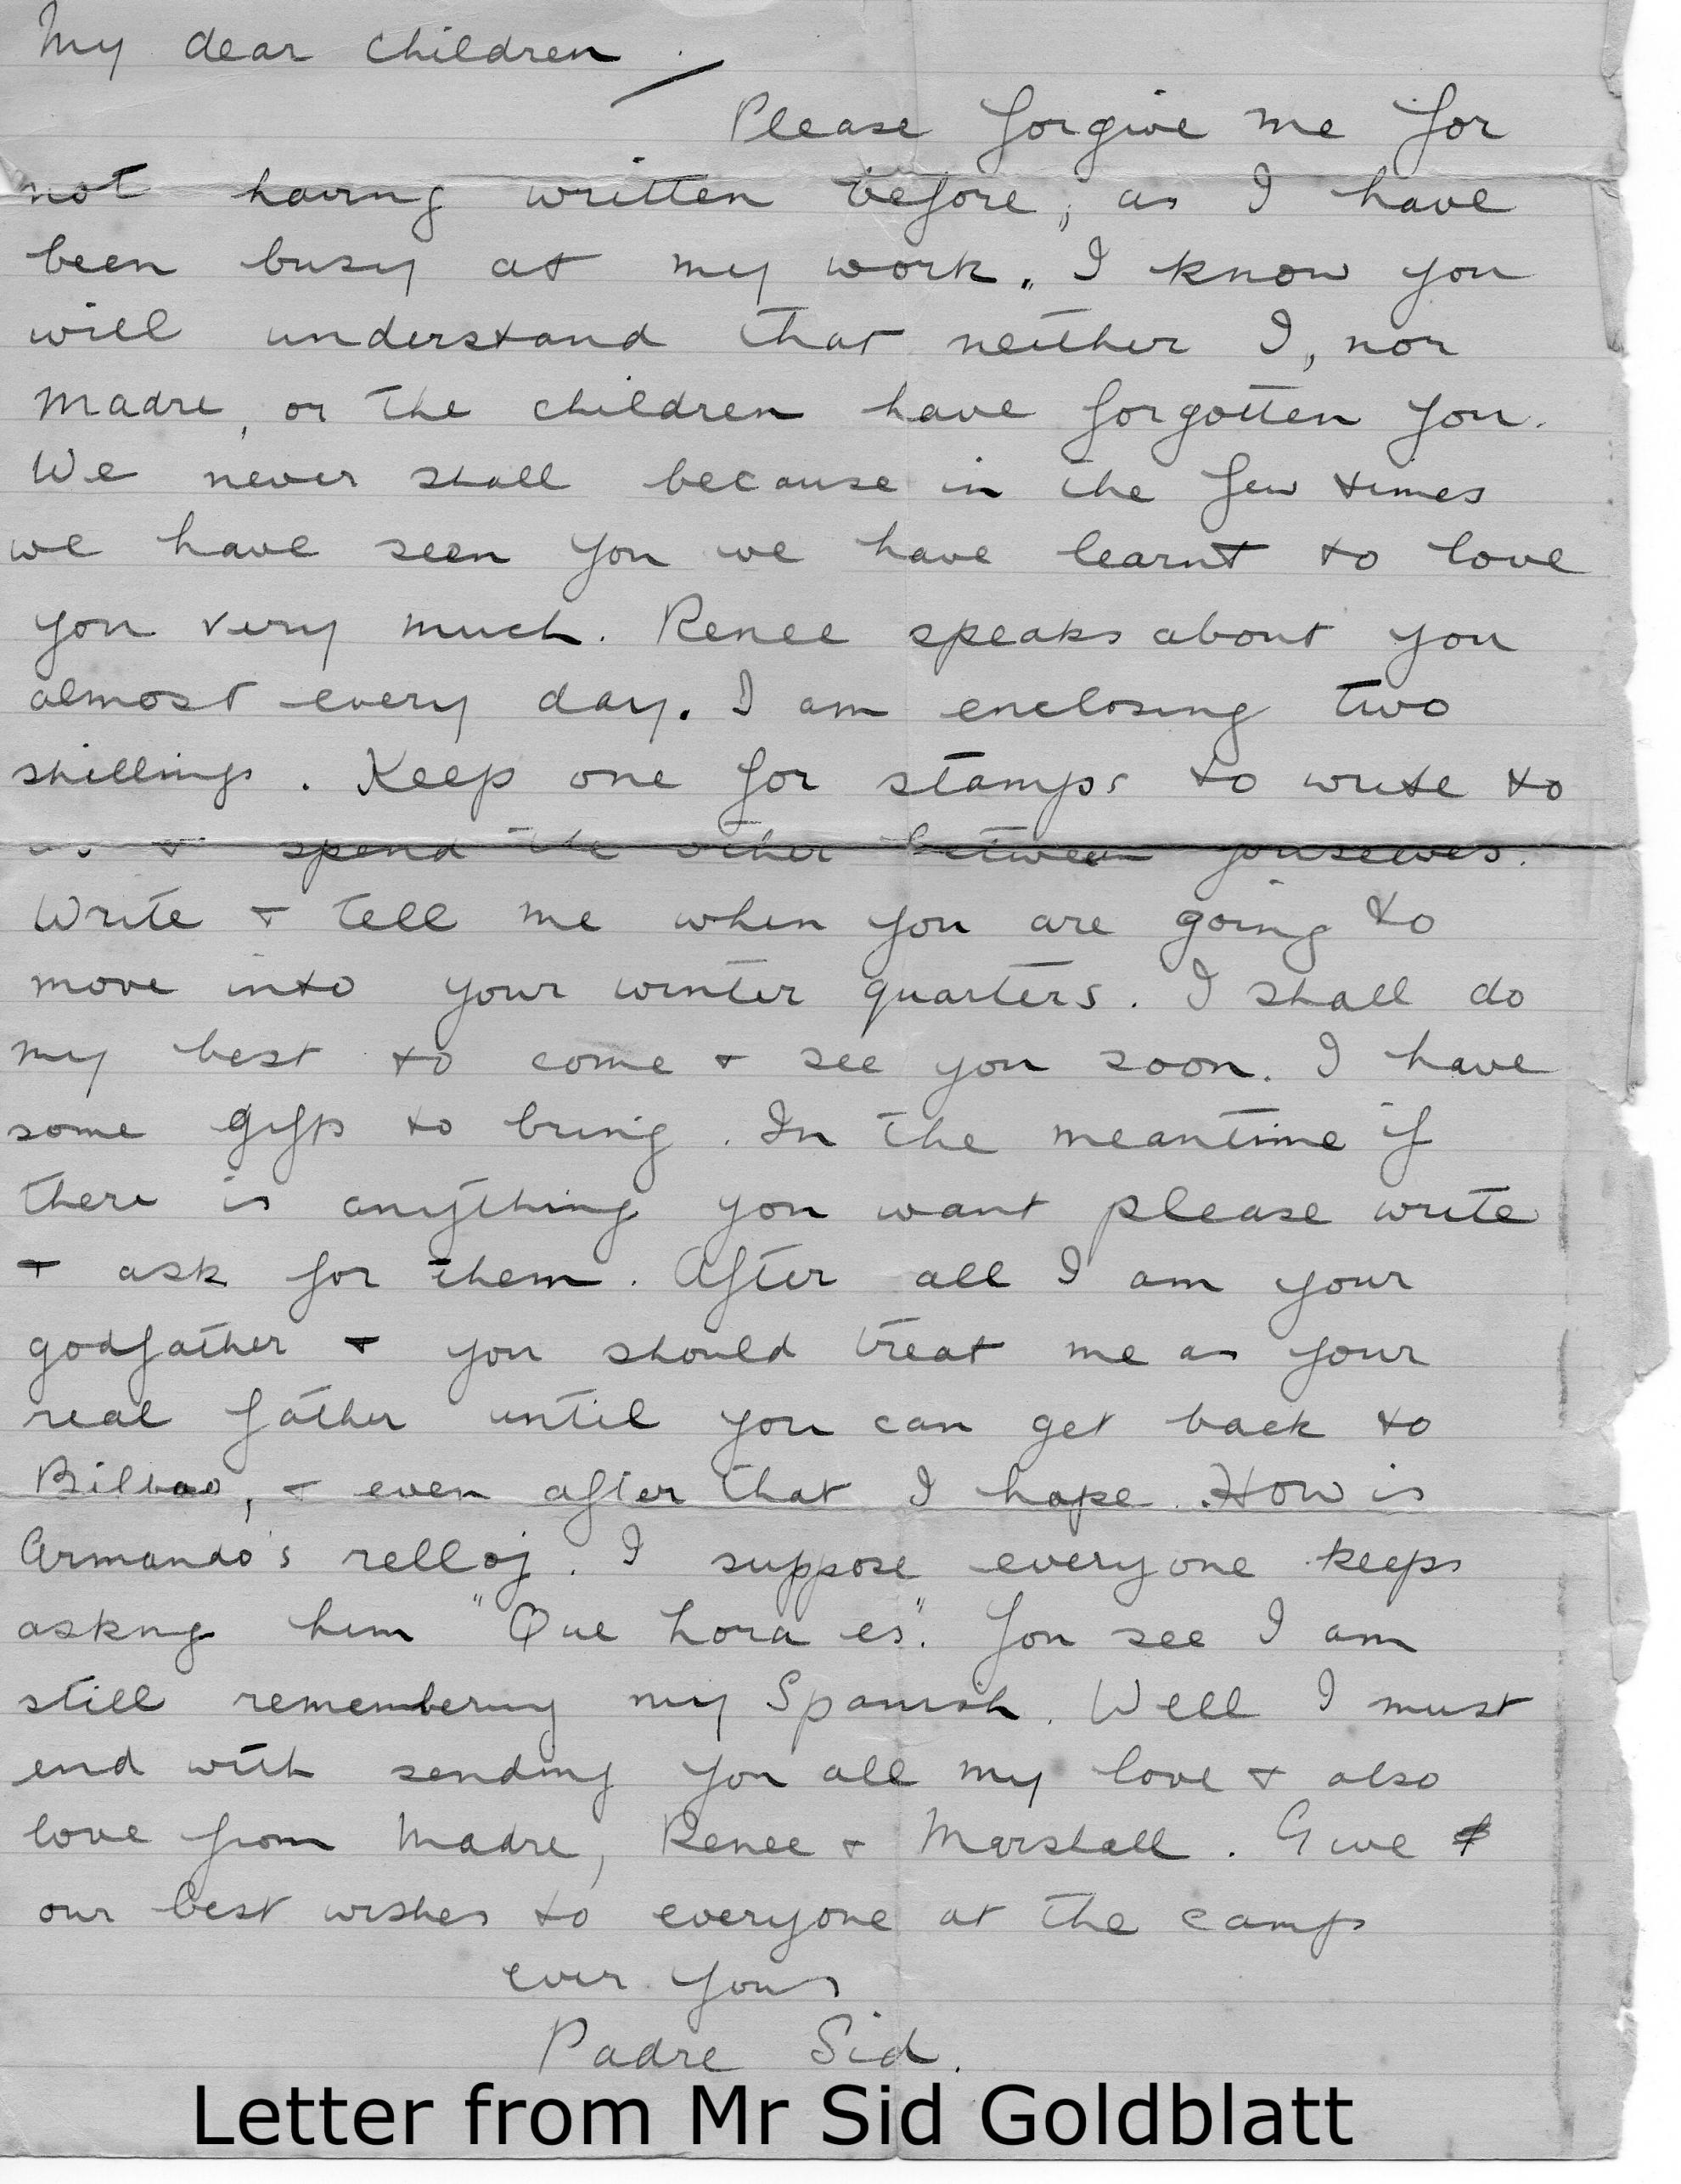 My dear children
Please forgive me for
not having written before, as I have
been busy at my work. I know you
will understand that neither I, nor
Madre, or the children have forgotten you.
We never shall because in the few times
we have seen you we have learnt to love
you very much. Renee speaks about you
almost every day. I am enclosing two
shillings. Keep one for stamps to write to
us & spend the other between yourselves.
Write & tell me when you are going to
move into your winter quarters. I shall do
my best to come & see you soon. I have
some gifts to bring. In the meantime if
there is anything you want please write
& ask for them. After all I am your
godfather & you should treat me as your
real father until you can get back to
Bilbao, & even after that I hope. How is
Armando's relloj. I suppose everyone keeps
asking him "Que hora es". You see I am
still remembering my Spanish. Well I must
end with sending you all my love & also
love from Madre, Renee & Marshall. Give
our best wishes to everyone at the camp
ever yours
Padre Sid.
Letter from Mr Sid Goldblatt